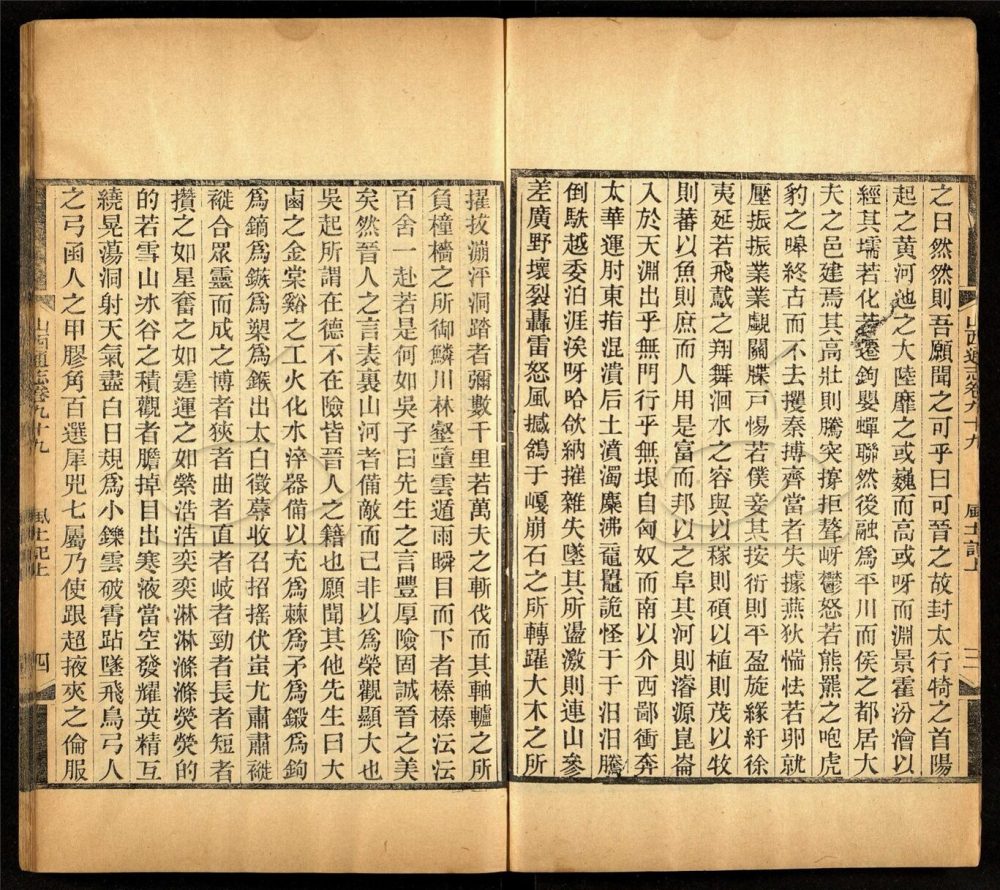 山西通志卷九十九 風土記上 三
之曰然然則吾願聞之可乎曰可晉之故封太行犄之首陽
起之黃河迤之大陸靡之或巍而高或呀而淵景霍汾澮以
經其壖若化若遷鉤嬰蟬聯然後融爲平川而侯之都居大
夫之邑建焉其高壯則騰突撐拒聱岈鬱怒若熊羆之咆虎
豹之嗥終古而不去攫秦搏齊當者失據燕狄惴怯若卵就
壓振振業業覷關牒戸惕若僕妾其按衍則平盈旋緣紆徐
夷延若飛鳶之翔舞洄水之容與以稼則碩以植則茂以牧
則蕃以魚則庶而人用是富而邦以之阜其河則濬源崑崙
入於天淵出乎無門行乎無垠自匈奴而南以介西鄙衝奔
太華運肘東指混潰后土濆濁麋沸黿鼉詭怪于于汩汩騰
倒駃越委泊涯涘呀哈欱納摧雜失墜其所盪激則連山參
差廣野壞裂轟雷怒風撼鴿于嘎崩石之所轉躍大木之所
擢拔漰泙洞踏者彌數千里若萬夫之斬伐而其軸轤之所
負橦檣之所御鱗川林壑墮雲遁雨瞬目而下者榛榛沄沄
百舍一赴若是何如吳子曰先生之言豐厚險固誠晉之美
矣然晉人之言表裏山河者備敵而已非以爲榮觀顯大也
吳起所謂在德不在險皆晉人之籍也願聞其他先生曰大
鹵之金棠谿之工火化水淬器備以充爲棘爲矛爲鍛爲鉤
爲鏑爲鏃爲槊爲鍭出太白徵蓐收召招搖伏蚩尤肅肅褷
褷合眾靈而成之博者狹者曲者直者岐者勁者長者短者
攢之如星奮之如霆運之如縈浩浩奕奕淋淋滌滌熒熒的
的若雪山冰谷之積觀者膽掉目出寒液當空發耀英精互
繞晃蕩洞射天氣盡白日規爲小鑠雲破霄跕墜飛鳥弓人
之弓函人之甲膠角百選犀兕七屬乃使跟超掖夾之倫服
山西通志卷九十九 風土記上 四